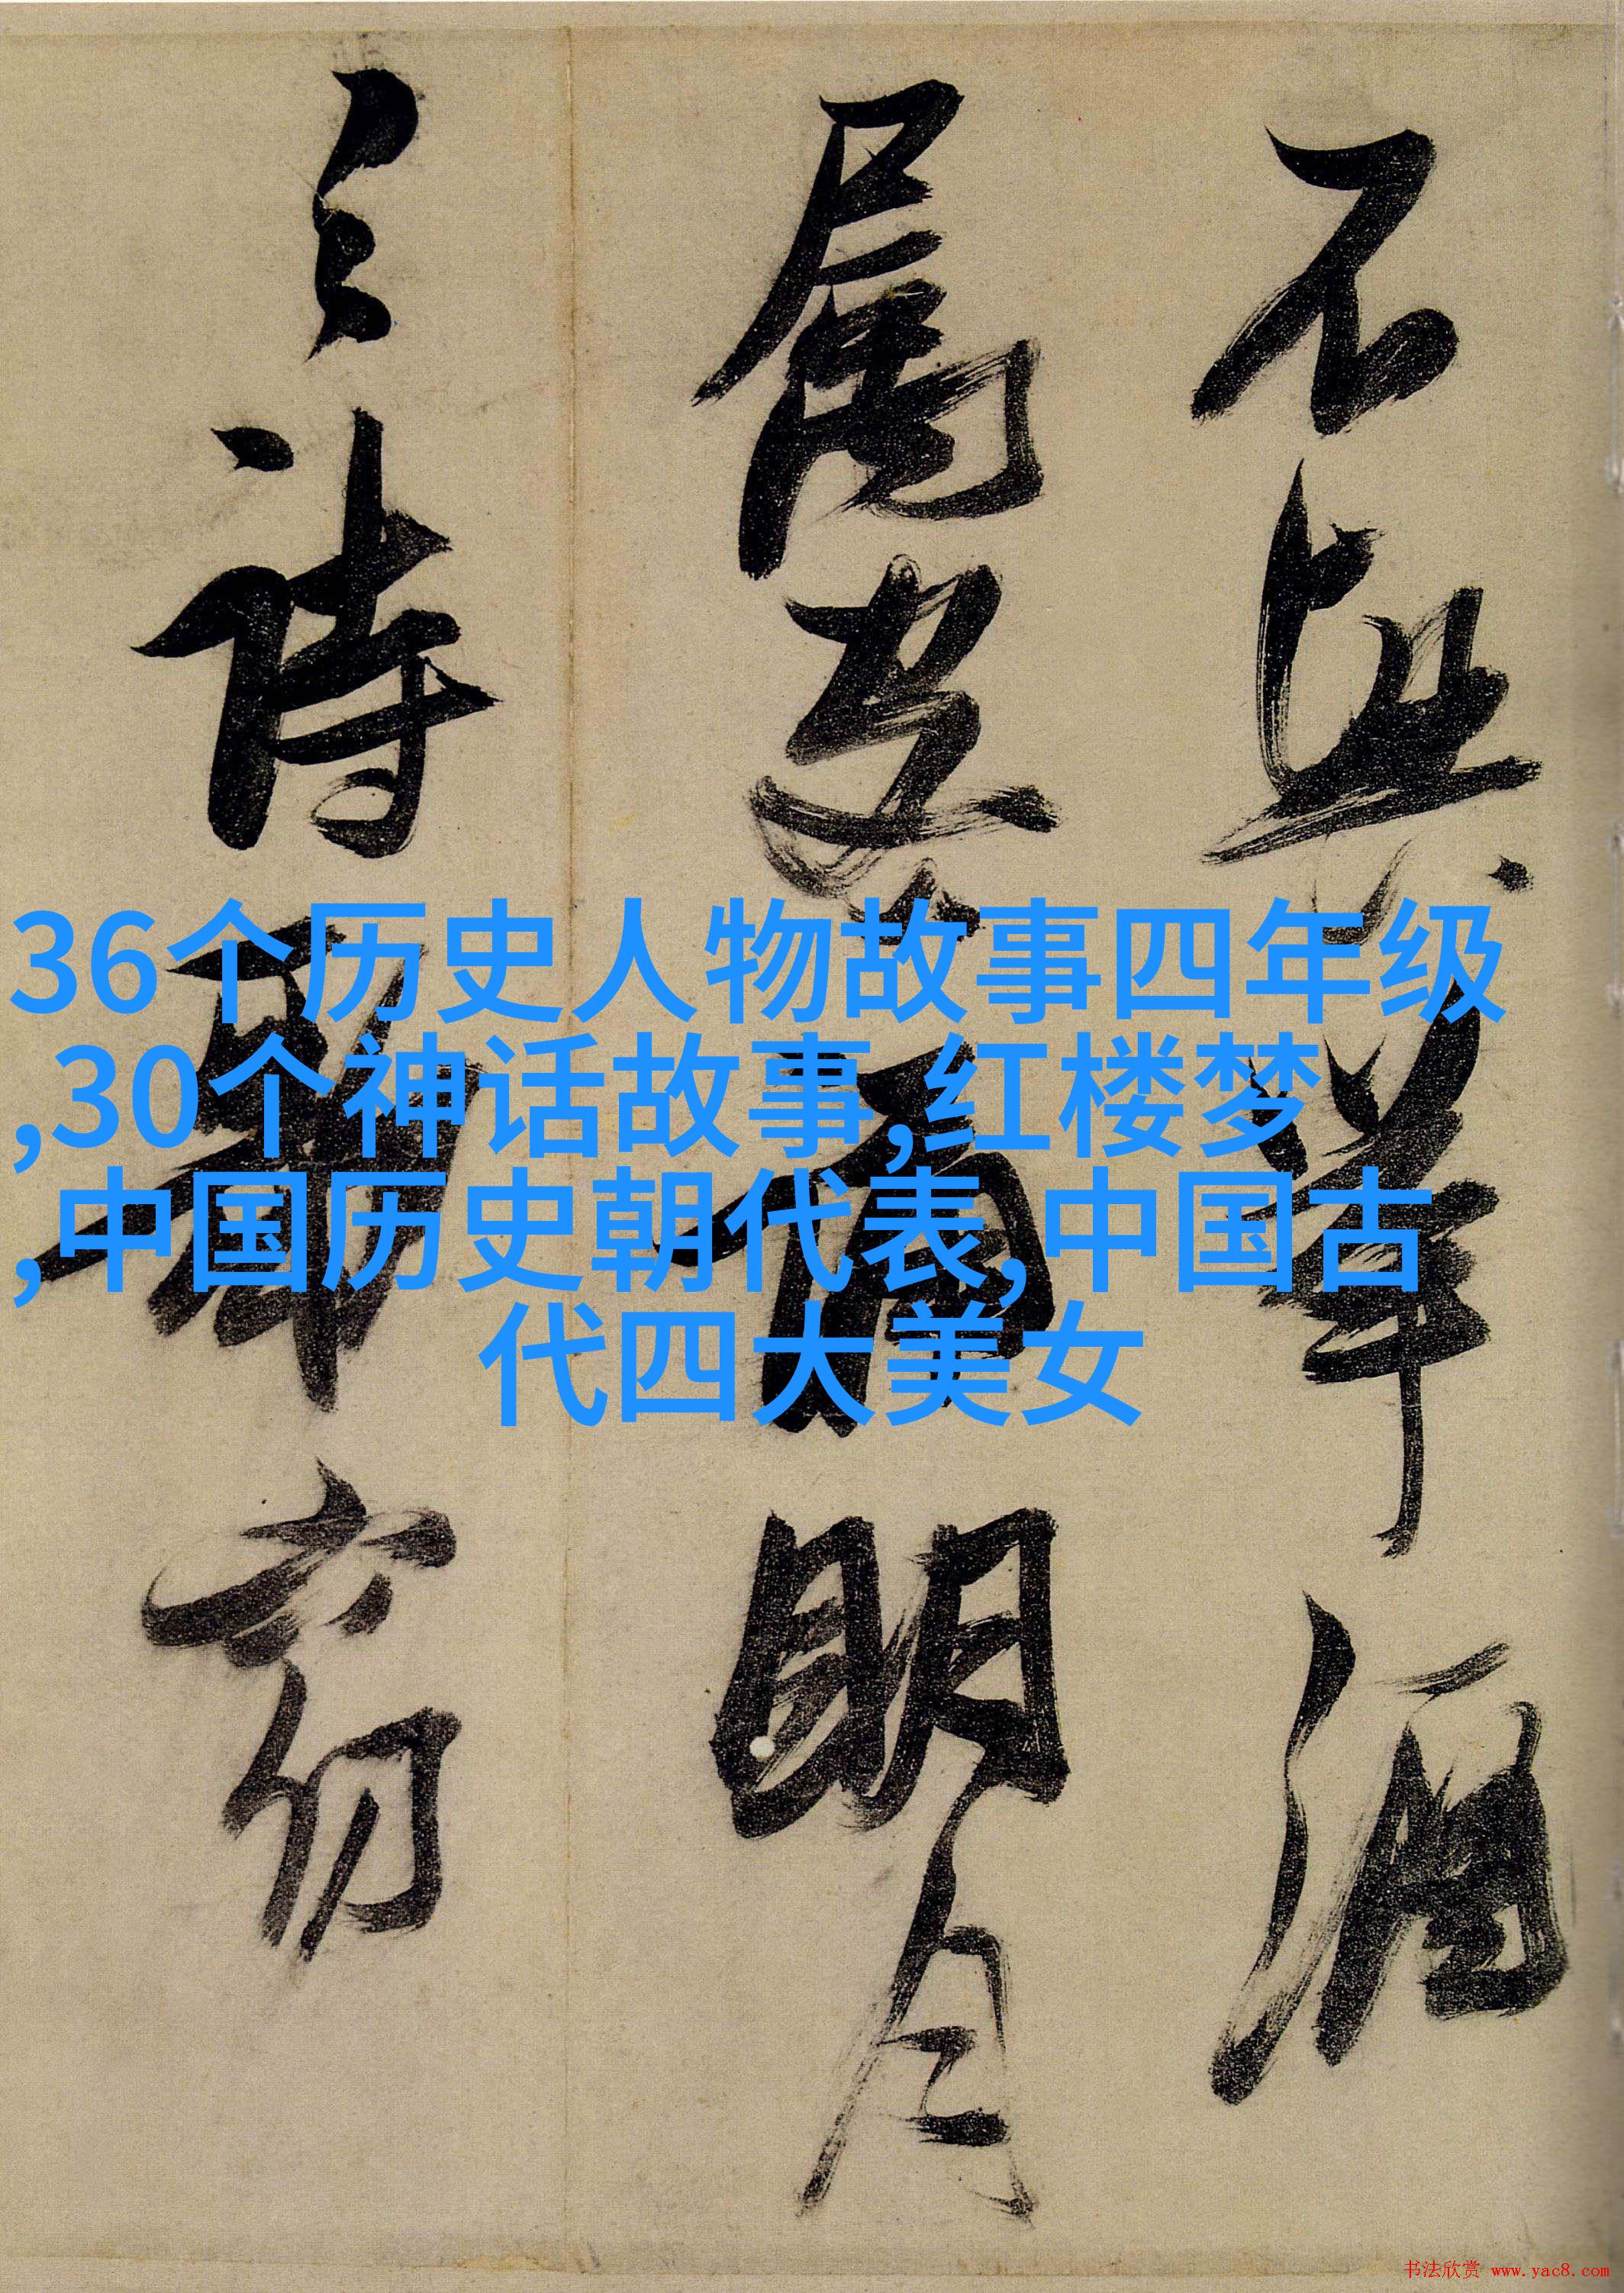 不興舉酒
屬客誦明月
之詩歌窈
36个历史人物故事四年级
,30个神话故事,红楼梦
,中国历史朝代表,中国古
代四大美女
书法欣赏 www.yac8.com